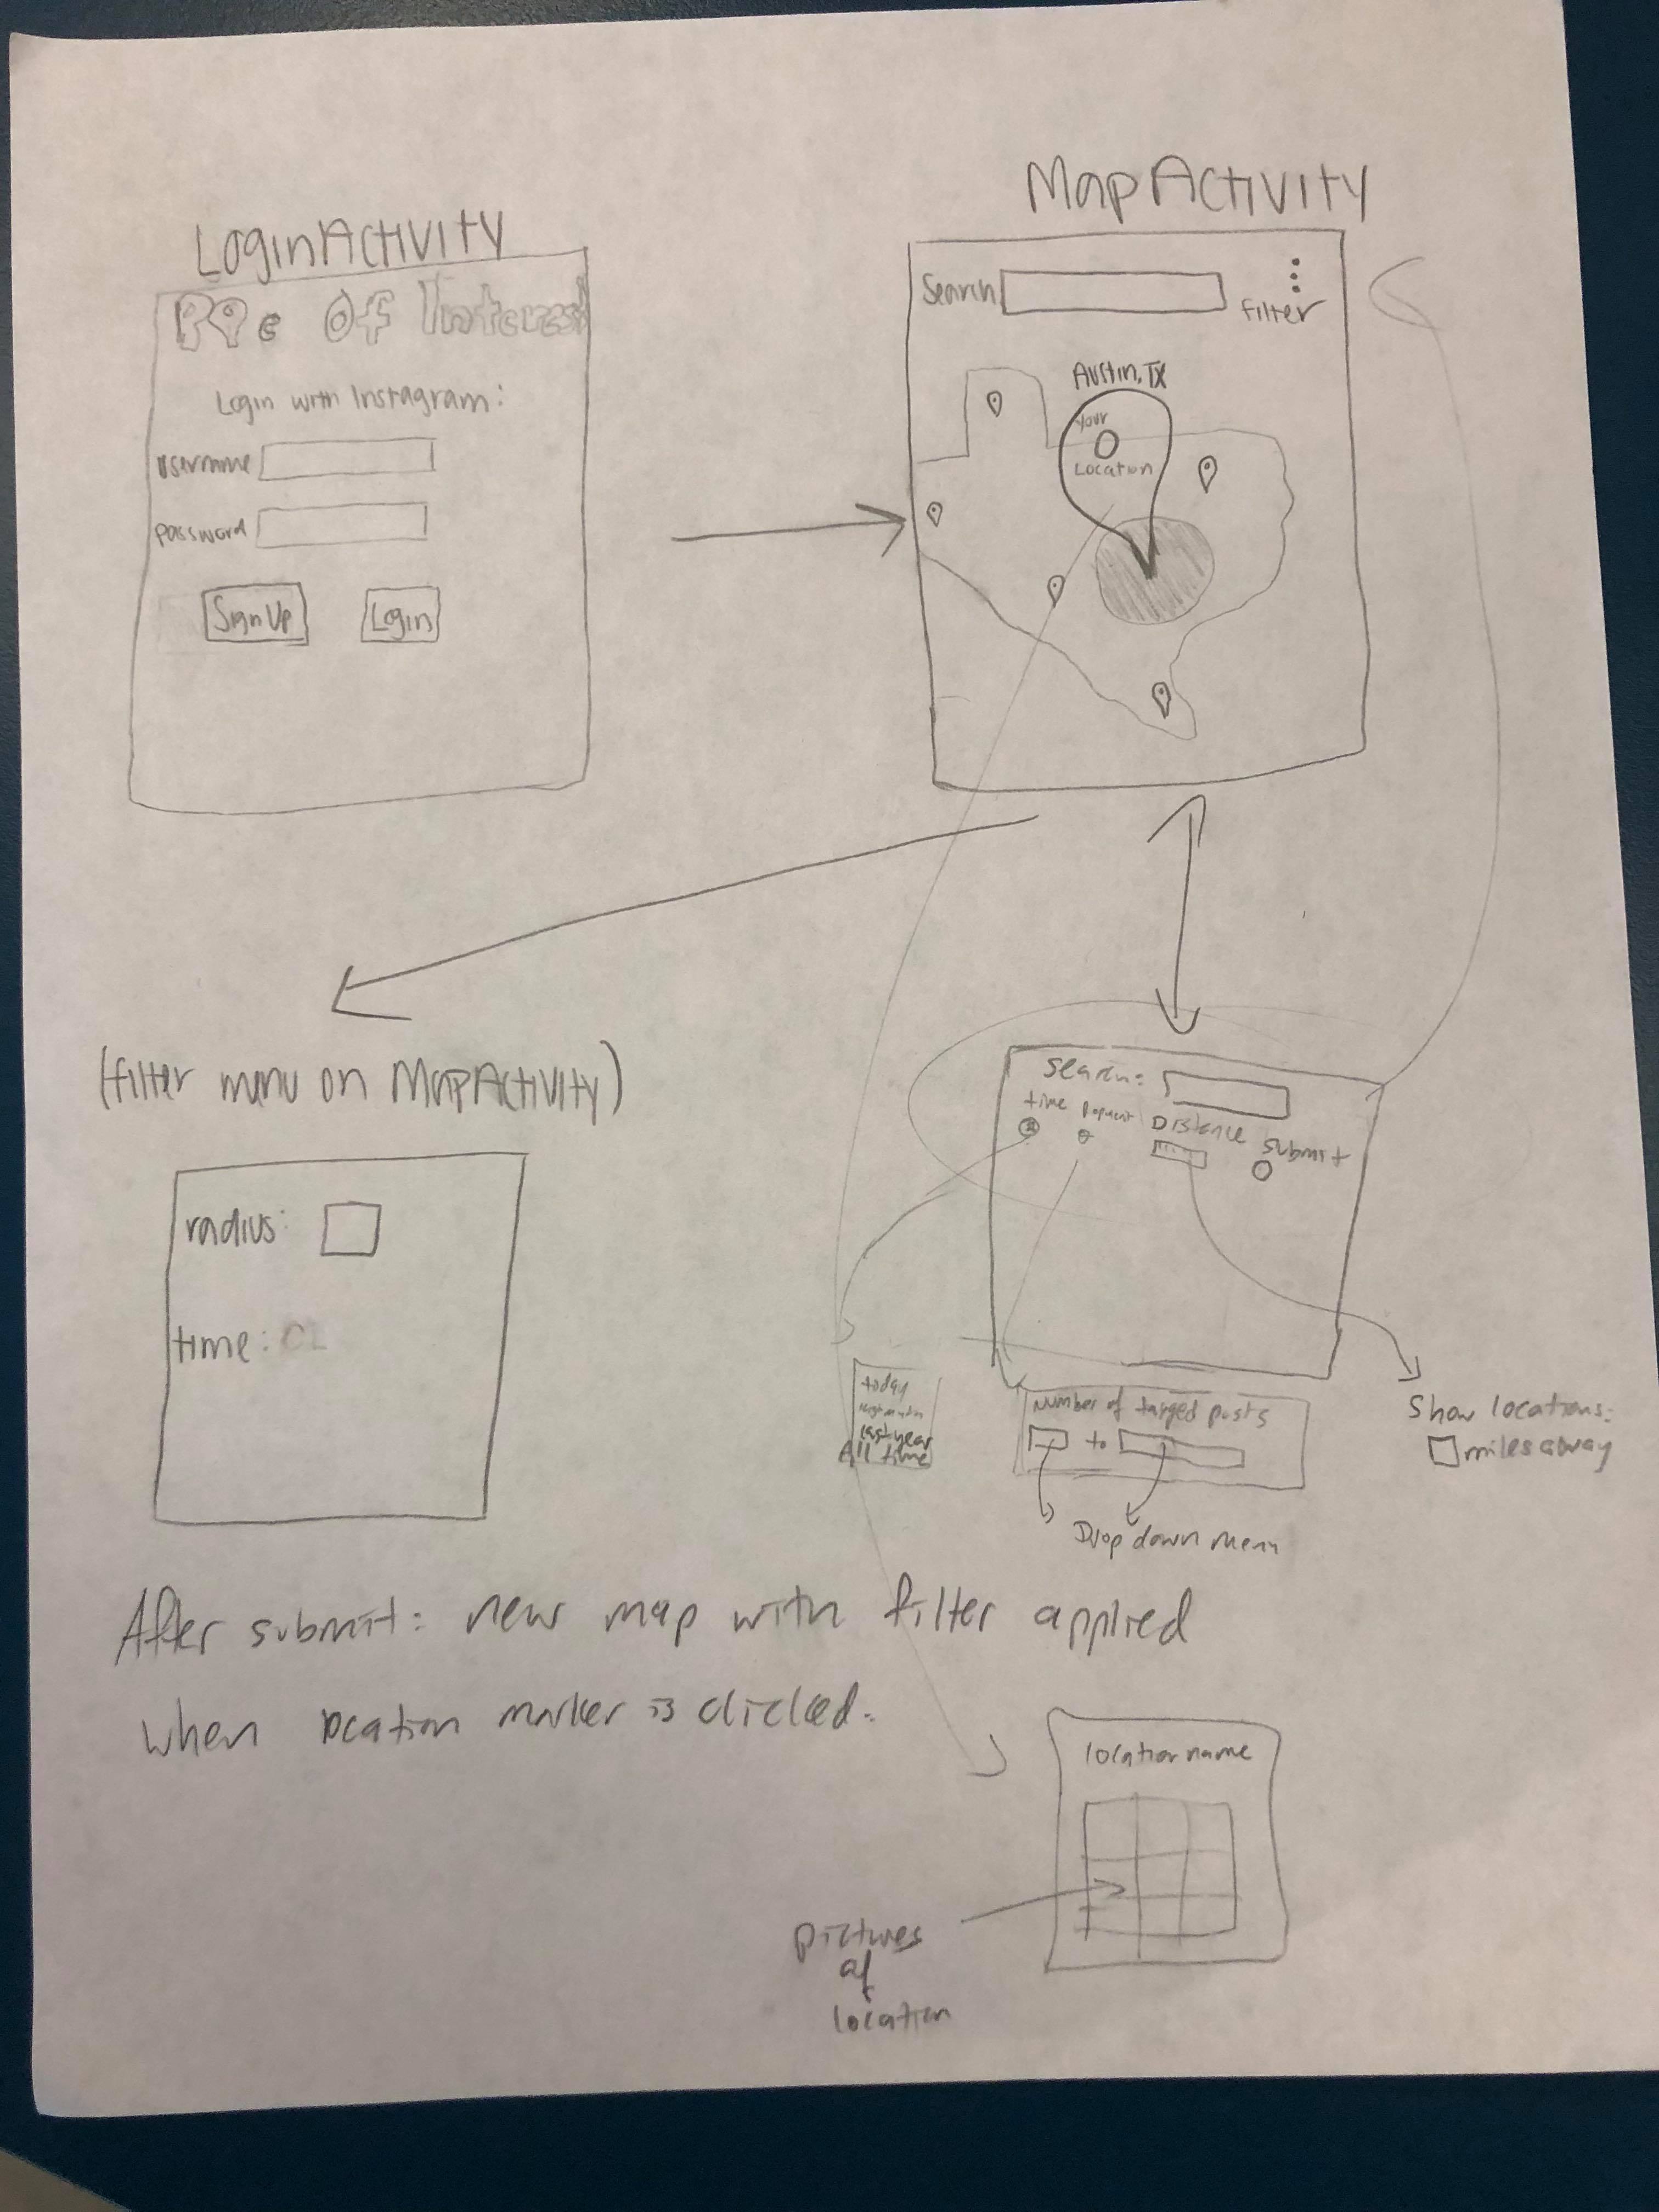 LoginActivity
Pic Of Interest
Login with Instagram:
username
password
Sign Up
Login
MapActivity
Search
filter
Austin, TX
Your
Location
(filter menu on MapActivity)
radius:
time:
Search:
time
Distance
Submit
today
last year
All time
Number of tagged posts
to
Drop down menu
Show locations:
miles away
After submit: new map with filter applied
when location marker is clicked.
location name
pictures
of
location